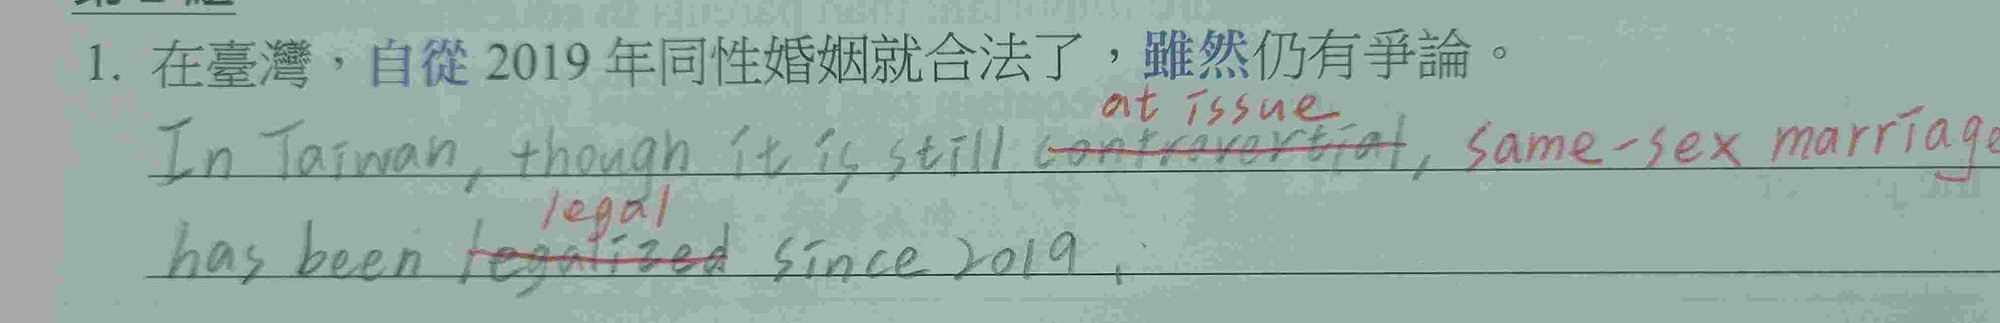 1. 在臺灣，自從 2019 年同性婚姻就合法了，雖然仍有爭論。
at issue
In Taiwan, though it is still controvertial, same-sex marriage
legal
has been legalized since 2019.